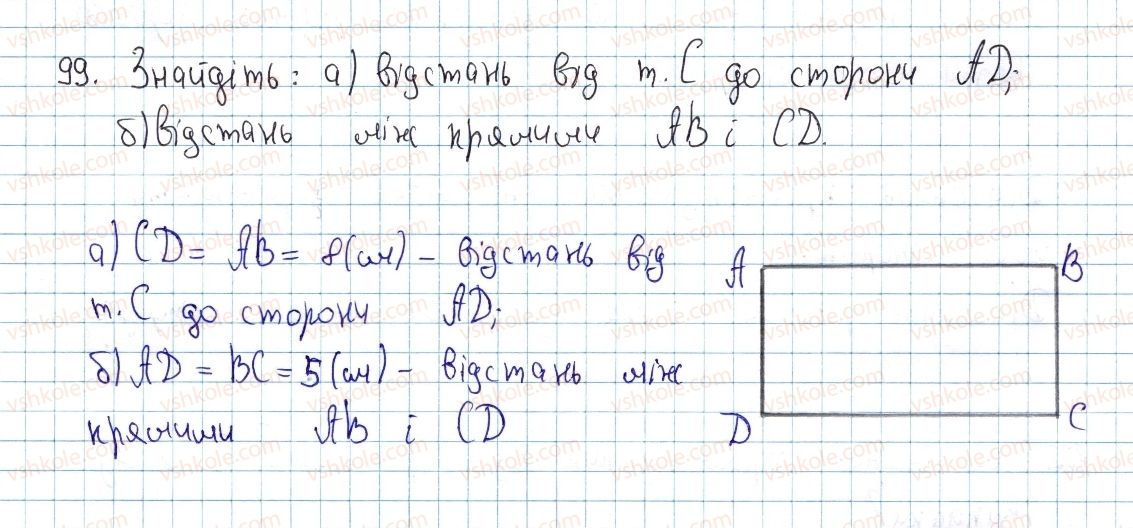 99. Знайдіть: а) відстань від т. С до сторони AD;
б) відстань між прямими AB і CD.
а) CD = AB = 8 (см) – відстань від
т. С до сторони AD;
б) AD = BC = 5 (см) – відстань між
прямими AB і CD
A B
D C